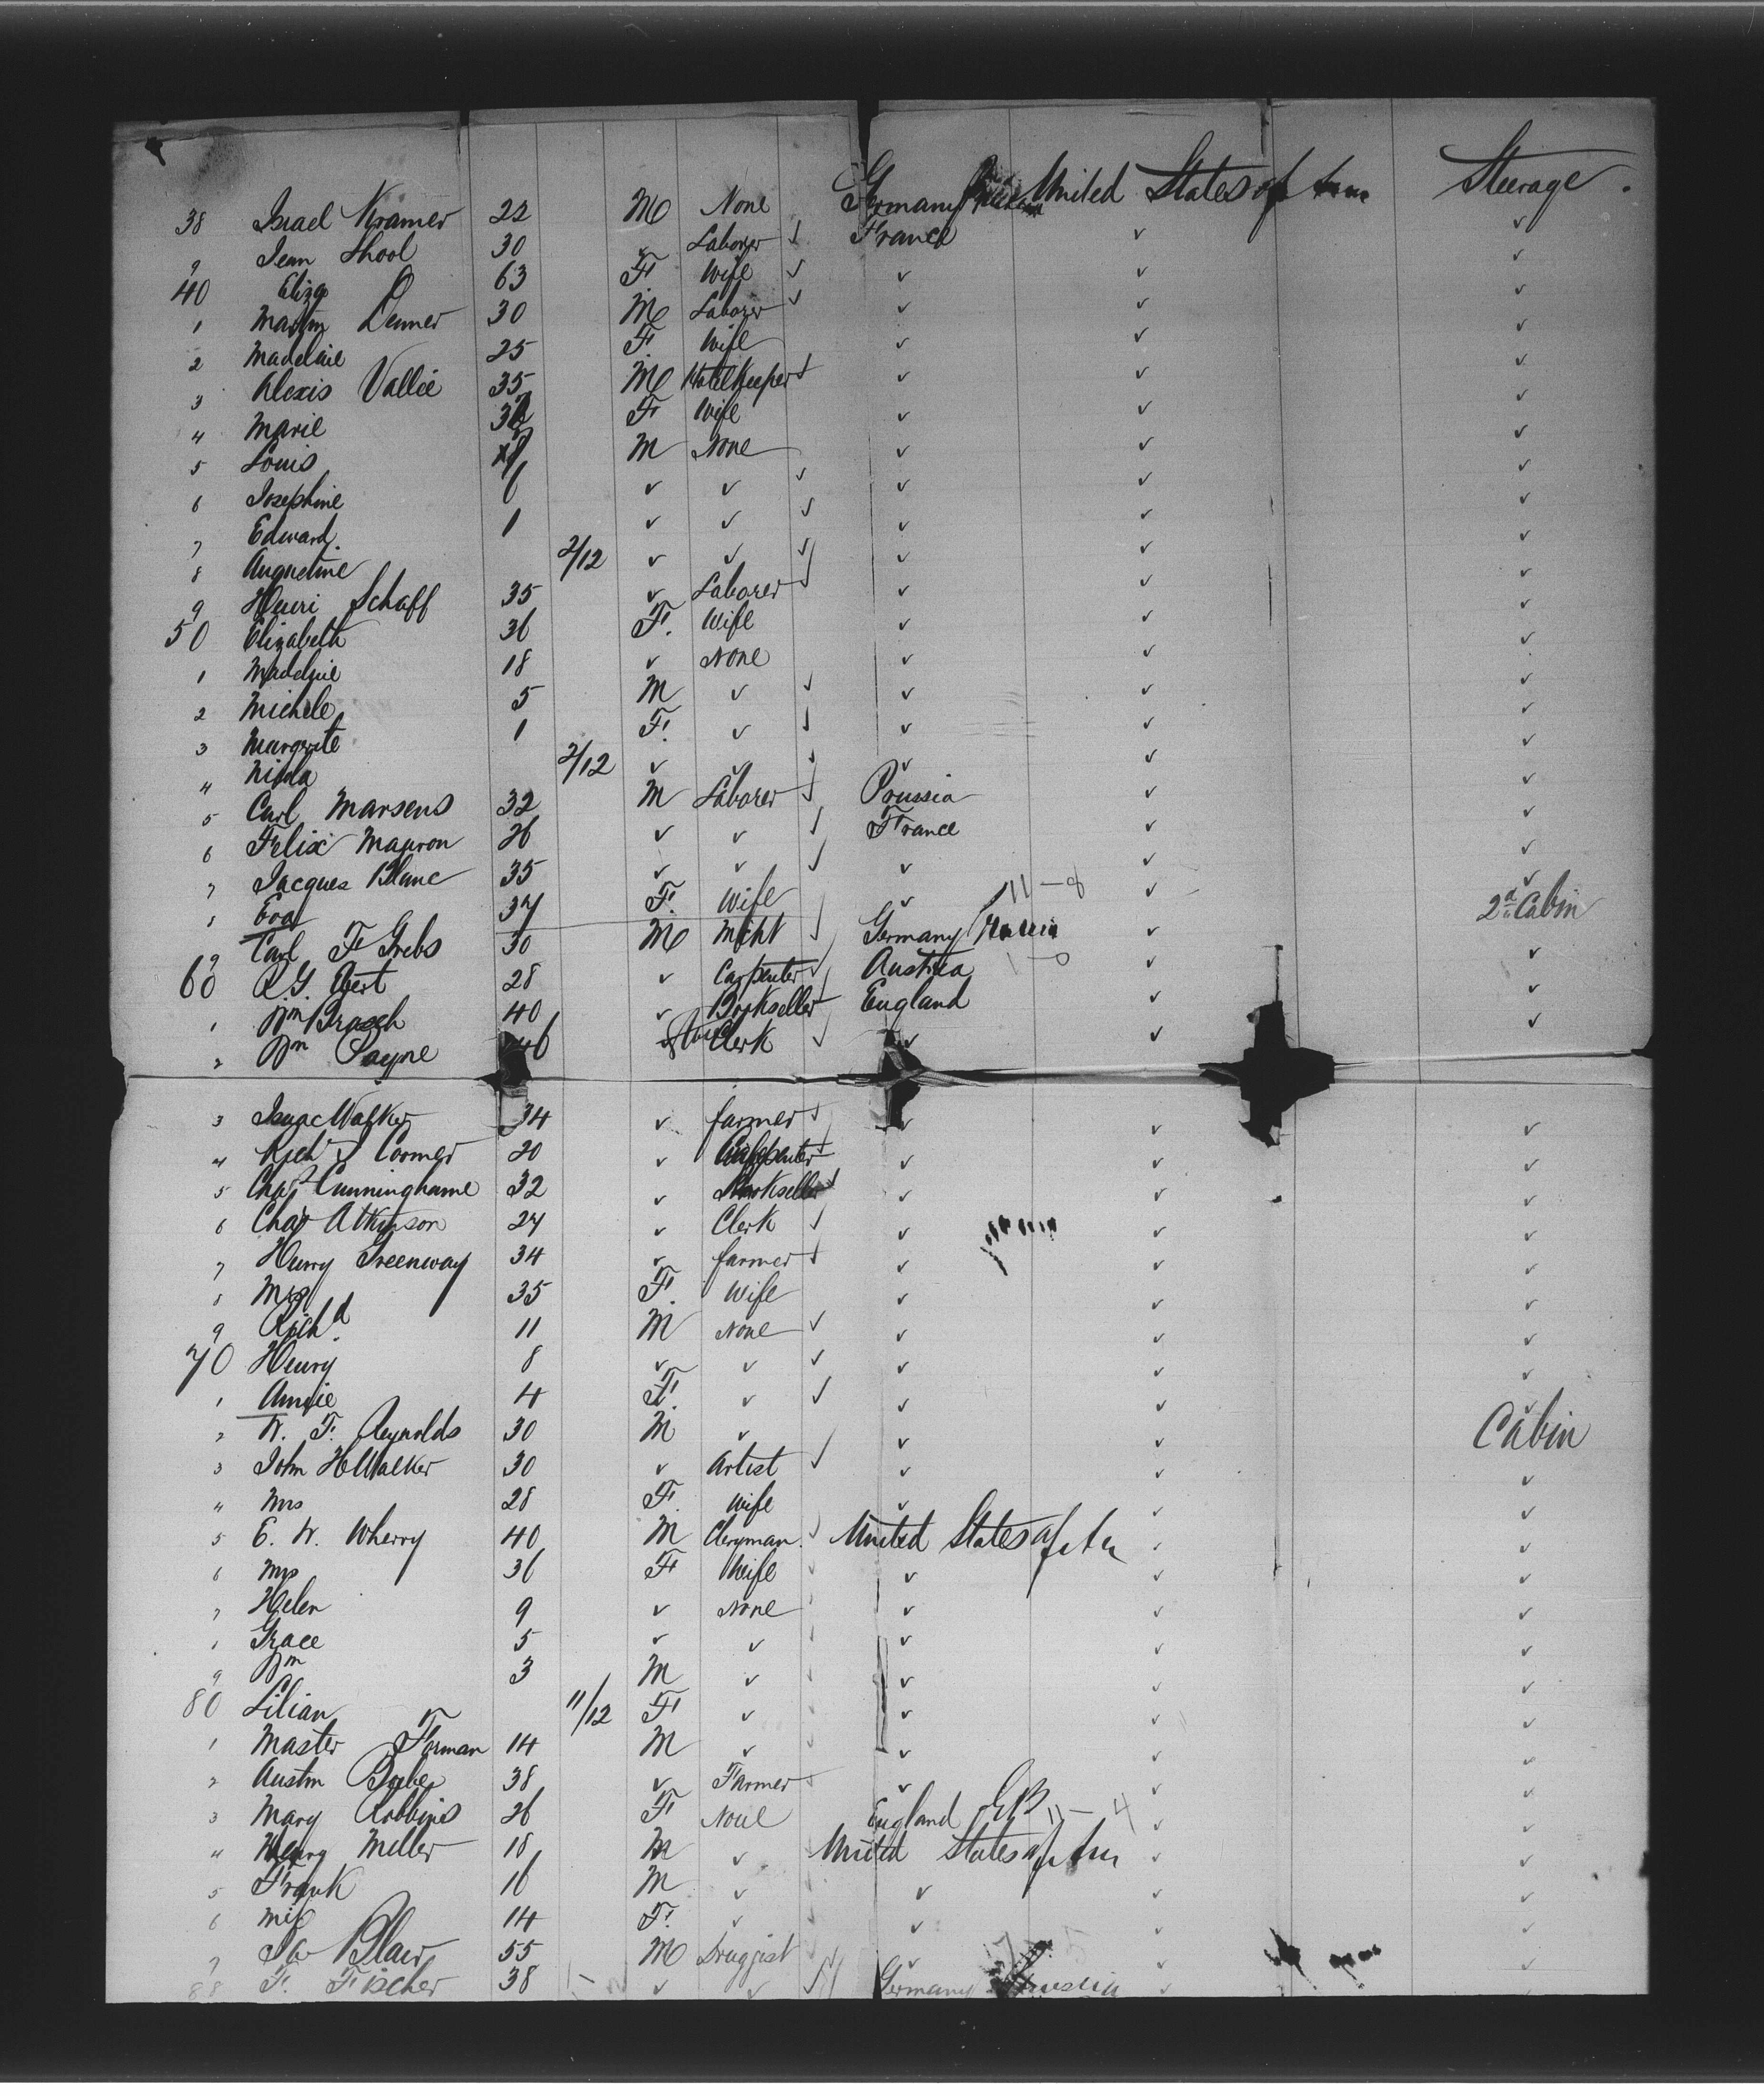 38 Israel Kramer 22 M None Germany United States of Am Steerage.
9 Jean Shool 30 ✓ Laborer ✓ France ✓ ✓
40 Eliza 63 F. Wife ✓ ✓ ✓ ✓
1 Martin Denner 30 M Laborer ✓ ✓ ✓ ✓
2 Madelaie 25 F. Wife ✓ ✓ ✓
3 Alexis Vallie 35 M Hotelkeeper ✓ ✓ ✓ ✓
4 Marie F Wife ✓ ✓ ✓
5 Louis M None ✓ ✓ ✓
6 Josephine 6 ✓ ✓ ✓ ✓ ✓ ✓
7 Edward. 1 ✓ ✓ ✓ ✓ ✓ ✓
8 Augustine 2/12 ✓ ✓ ✓ ✓ ✓ ✓
9 Henri Schaff 35 ✓ Laborer ✓ ✓ ✓ ✓
50 Elizabeth 36 F. Wife ✓ ✓ ✓
1 18 ✓ None ✓ ✓ ✓
2 Michele 5 M ✓ ✓ ✓ ✓ ✓
3 Margrite 1 F. ✓ ✓ ✓ ✓ ✓
4 2/12 ✓ ✓ ✓ ✓ ✓ ✓
5 Carl Marsens 32 M Laborer ✓ Prussia ✓ ✓
6 Felix Mauron 26 ✓ ✓ ✓ France ✓ ✓
7 Jacques Blanc 35 ✓ ✓ ✓ ✓ ✓ ✓
8 Eva 37 F. Wife ✓ 11-8 ✓ ✓
9 Carl F Grebs 30 M Mcht ✓ Germany ✓ 2d Cabin
60 R G. 28 ✓ Carpenter ✓ Austria 1-0 ✓ ✓
1 Wm Brasch 40 ✓ Bookseller England ✓ ✓
2 Wm Payne 46 Clerk ✓ ✓ ✓ ✓
3 Isaac Walker 34 ✓ farmer ✓ ✓ ✓ ✓
4 Richd J Cormer 20 ✓ Carpenter ✓ ✓ ✓
5 Chas Cunninghame 32 ✓ Bookseller ✓ ✓ ✓ ✓
6 Chas Atkinson 27 ✓ Clerk ✓ ✓ ✓ ✓
7 Henry Greenway 34 ✓ farmer ✓ ✓ ✓ ✓
8 Mrs 35 F. Wife ✓ ✓ ✓
9 Richd. 11 M None ✓ ✓ ✓ ✓
70 Henry 8 ✓ ✓ ✓ ✓ ✓ ✓
1 Annie 4 F. ✓ ✓ ✓ ✓ ✓
2 W. F. Reynolds 30 M ✓ ✓ ✓ Cabin
3 John H Walker 30 ✓ Artist ✓ ✓ ✓ ✓
4 Mrs 28 F. Wife ✓ ✓ ✓
5 E. W. Wherry 40 M Clergyman. ✓ United States of Am ✓ ✓
6 Mrs 36 F Wife ✓ ✓ ✓
7 Helen 9 ✓ None ✓ ✓ ✓
8 Grace 5 ✓ ✓ ✓ ✓ ✓
9 Wm 3 M ✓ ✓ ✓ ✓
80 Lilian 11/12 F ✓ ✓ ✓ ✓
1 Master Forman 14 M ✓ ✓ ✓ ✓
2 Austin 38 ✓ Farmer ✓ ✓ ✓
3 Mary Robbins 26 F None England GB 11-4 ✓ ✓
4 Henry Miller 18 M ✓ United States of Am ✓ ✓
5 Frank 16 M ✓ ✓ ✓ ✓
6 Miss 14 F. ✓ ✓ ✓ ✓
7 55 M Druggist ✓ ✓ ✓ ✓
88 F. Fischer 38 ✓ ✓ ✓ Germany Prussia ✓